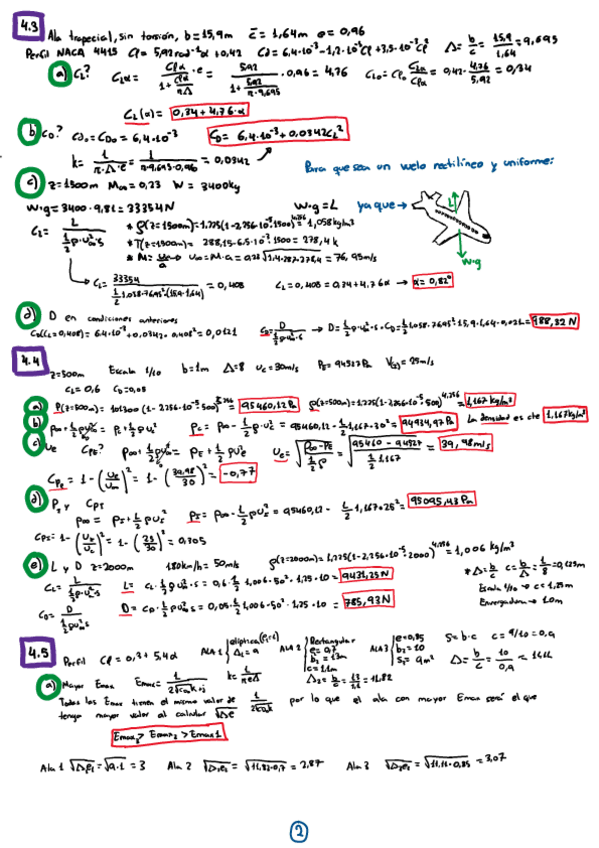 4.3 Ala trapecial, sin torsión, b=15,9m c̄=1,64m e=0,96
Perfil NACA 4415 Cl=5,92rad⁻¹α+0,42 Cd=6,4·10⁻³-1,2·10⁻³Cl+3,5·10⁻³Cl² Λ=b/c=15,9/1,64=9,695
a) CL? CLα=Clα/(1+Clα/πΛ)·e=5,92/(1+5,92/π·9,695)·0,96=4,76 CL0=Cl0 CLα/Clα=0,42·4,76/5,92=0,34
CL(α)=0,34+4,76·α
b) CD? Cd0=CD0=6,4·10⁻³ CD=6,4·10⁻³+0,0342CL²
k=1/(π·Λ·e)=1/(π·9,695·0,96)=0,0342
Para que sea un vuelo rectilíneo y uniforme:
c) z=1500m M∞=0,23 W=3400kg
W·g=3400·9,81=33354N W·g=L ya que → L
CL=L/(½ρ·u∞²·s) * ρ(z=1500m)=1,225(1-2,256·10⁻⁵·1500)^4,256=1,058kg/m³
* T(z=1500m)=288,15-6,5·10⁻³·1500=278,4k W·g
* M=u∞/a → u∞=M·a=0,23√1,4·287·278,4=76,95m/s
→ CL=33354/(½·1,058·76,95²·(15,9·1,64))=0,408 CL=0,408=0,34+4,76α → α=0,82°
d) D en condiciones anteriores
CD(CL=0,408)=6,4·10⁻³+0,0342·0,408²=0,0121 CD=D/(½ρu∞²·s) → D=½ρ·u∞²·s·CD=½·1,058·76,95²·15,9·1,64·0,0121=988,32N
4.4 z=500m Escala 1/10 b=1m Λ=8 uc=30m/s PE=94527Pa V(s)=25m/s
CL=0,6 CD=0,05
a) P(z=500m)=101300(1-2,256·10⁻⁵·500)^5,256=95460,12Pa ρ(z=500m)=1,225(1-2,256·10⁻⁵·500)^4,256=1,167kg/m³
b) p∞+½ρu∞²=Pc+½ρu² Pc=p∞-½ρ·u²=95460,12-½·1,167·30²=94934,97Pa La densidad es cte 1,167kg/m³
c) ue CPE? p∞+½ρu∞²=PE+½ρu²e ue=√((p∞-PE)/(½ρ))=√((95460-94527)/(½·1,167))=39,98m/s
CPe=1-(ue/u∞)²=1-(39,98/30)²=-0,77
d) Ps y CPs
p∞=Ps+½ρus² Ps=p∞-½ρus²=95460,12-½·1,167·25²=95095,43Pa
CPs=1-(us/u∞)²=1-(25/30)²=0,305
e) L y D z=2000m 180km/h=50m/s ρ(z=2000m)=1,225(1-2,256·10⁻⁵·2000)^4,256=1,006 kg/m³
CL=L/(½ρu∞²·s) L=CL·½ρu∞²·s=0,6·½·1,006·50²·1,25·10=9431,25N * Λ=b/c c=b/Λ=1/8=0,125m
Escala 1/10 → c=1,25m
CD=D/(½ρu∞²s) D=CD·½ρu∞²s=0,05·½·1,006·50²·1,25·10=785,93N Envergadura → 10m
4.5 Perfil Cl=0,3+5,4α ALA 1 {elíptica (e=1) Λ1=9 ALA 2 {Rectangular e=0,7 b2=13m c=1,1m Λ2=b/c=13/1,1=11,82 ALA 3 {e=0,85 b3=10 S=9m² S=b·c c=9/10=0,9 Λ=b/c=10/0,9=11,11
a) Mayor Emax Emax=1/(2√CD0k) k=1/(πΛe)
Todas las Emax tienen el mismo valor de 1/(2√CD0k) por lo que el ala con mayor Emax será el que
tenga mayor valor al calcular √Λe
Emax3>Emax2>Emax1
Ala 1 √Λ1e1=√9·1=3 Ala 2 √Λ2e2=√11,82·0,7=2,87 Ala 3 √Λ3e3=√11,11·0,85=3,07
2